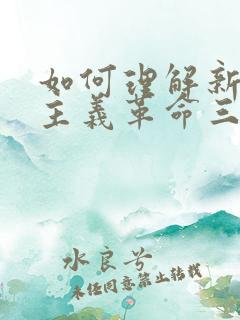 如何理解新
主义革命三
水良兮
未经同意禁止转载